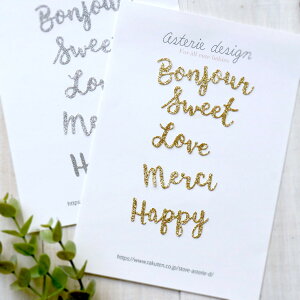 asterie design
Bonjour
Sweet
Love
Merci
Happy
https://www.rakuten.co.jp/store-asterie-d/
Bonjour
Sweet
Love
Me
H
https:/